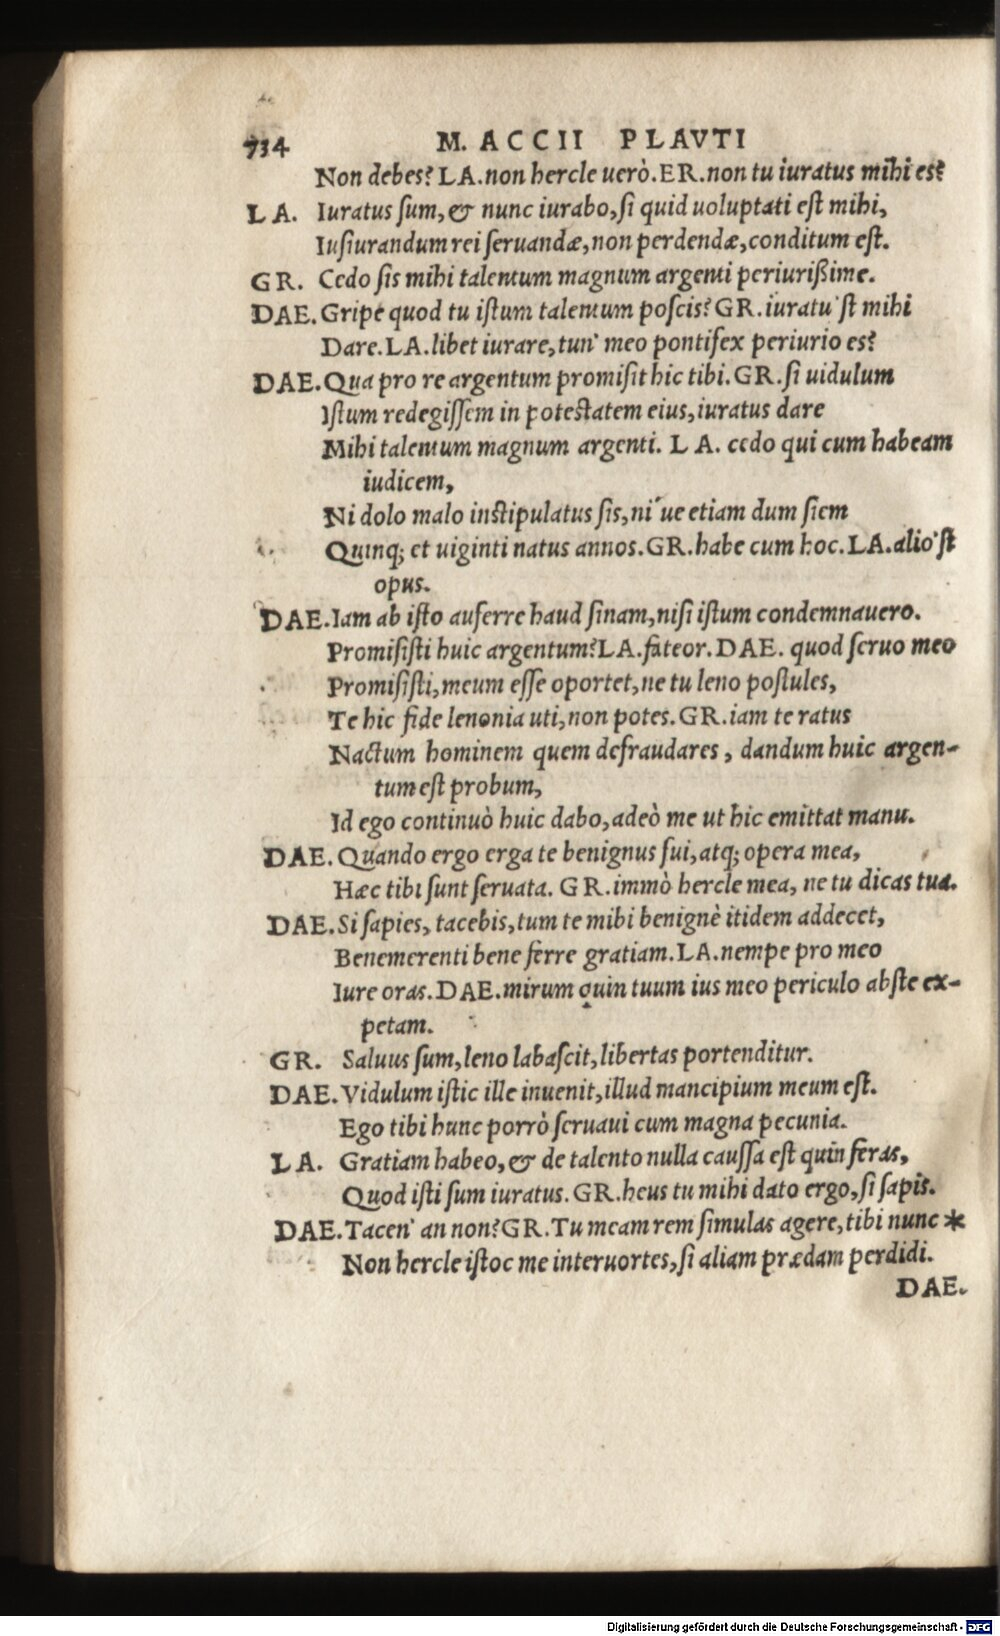 734 M. ACCII PLAVTI
Non debes? LA. non hercle uerò. ER. non tu iuratus mihi es?
LA. Iuratus ſum, & nunc iurabo, ſi quid uoluptati eſt mihi,
Iuſiurandum rei ſeruandæ, non perdendæ, conditum eſt.
GR. Cedo ſis mihi talentum magnum argenti periurißime.
DAE. Gripe quod tu iſtum talentum poſcis? GR. iuratu'ſt mihi
Dare. LA. libet iurare, tun' meo pontifex periurio es?
DAE. Qua pro re argentum promiſit hic tibi. GR. ſi uidulum
Iſtum redegiſſem in poteſtatem eius, iuratus dare
Mihi talentum magnum argenti. LA. cedo qui cum habeam
iudicem,
Ni dolo malo inſtipulatus ſis, ni'ue etiam dum ſiem
Quinq; et uiginti natus annos. GR. habe cum hoc. LA. alio'ſt
opus.
DAE. Iam ab iſto auferre haud ſinam, niſi iſtum condemnauero.
Promiſiſti huic argentum? LA. fateor. DAE. quod ſeruo meo
Promiſiſti, meum eſſe oportet, ne tu leno poſtules,
Te hic fide lenonia uti, non potes. GR. iam te ratus
Nactum hominem quem defraudares, dandum huic argen-
tum eſt probum,
Id ego continuò huic dabo, adeò me ut hic emittat manu.
DAE. Quando ergo erga te benignus fui, atq; opera mea,
Hæc tibi ſunt ſeruata. GR. immò hercle mea, ne tu dicas tua.
DAE. Si ſapies, tacebis, tum te mihi benignè itidem addecet,
Benemerenti bene ferre gratiam. LA. nempe pro meo
Iure oras. DAE. mirum quin tuum ius meo periculo abſte ex-
petam.
GR. Saluus ſum, leno labaſcit, libertas portenditur.
DAE. Vidulum iſtic ille inuenit, illud mancipium meum eſt.
Ego tibi hunc porrò ſeruaui cum magna pecunia.
LA. Gratiam habeo, & de talento nulla cauſſa eſt quin feras,
Quod iſti ſum iuratus. GR. heus tu mihi dato ergo, ſi ſapis.
DAE. Tacen' an non? GR. Tu meam rem ſimulas agere, tibi nunc *
Non hercle iſtoc me interuortes, ſi aliam prædam perdidi.
DAE.
Digitalisierung gefördert durch die Deutsche Forschungsgemeinschaft - DFG